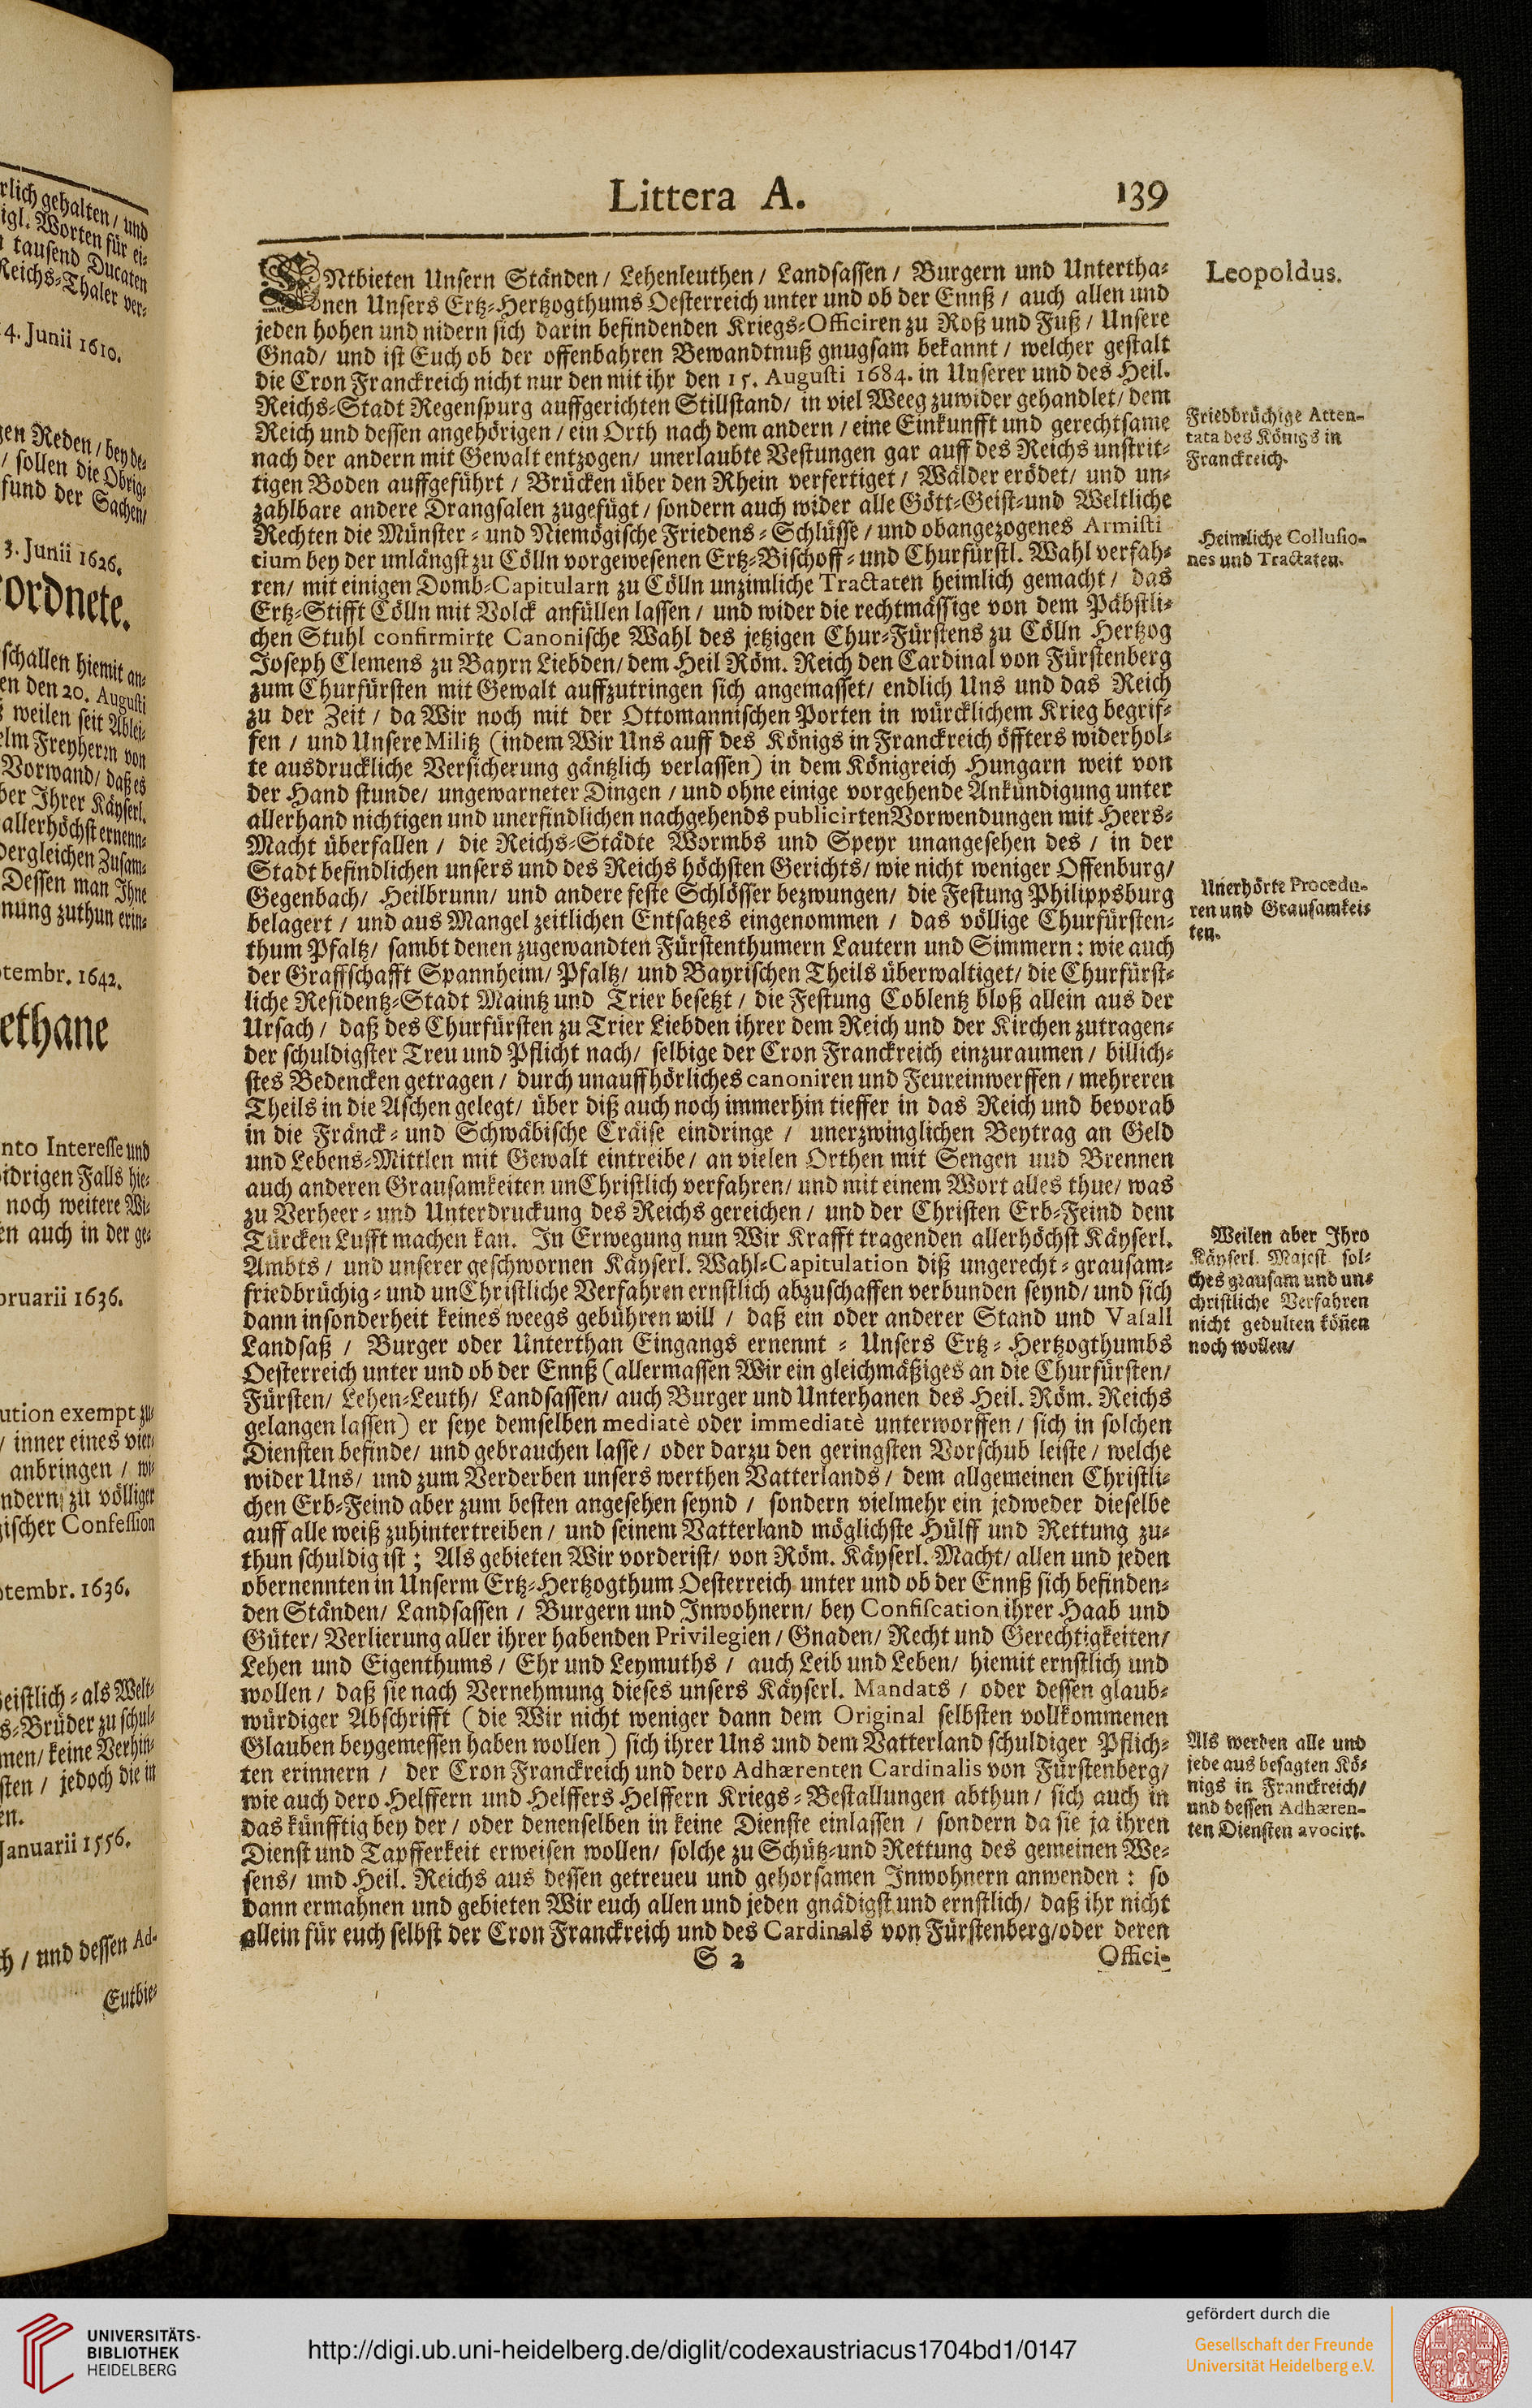 rlich gehalten / und
igl. Worten für ei-
tausend Ducaten
Reichs-Thaler ver-
4. Junii 1610.
en Reden / bey de-
/ sollen die Obrig-
fund der Sachen/
3. Junii 1626.
ordnete.
schallen hiemit an-
en den 20. Augusti
weilen seit Ablei-
elm Freyherrn von
Vorwand/ daß es
ber Ihrer Käyserl.
allerhöchst ernenn-
dergleichen Zusam-
Dessen man Ihne
nung zuthun erin-
tembr. 1642.
ethane
nto Interesse und
idrigen Falls hie-
noch weitere Wi-
en auch in der ge-
bruarii 1636.
ution exempt zu-
/ inner eines vier-
anbringen / wi-
ndern zu völliger
ischer Confession
tembr. 1636.
eistlich - als Welt-
s-Brüder zu schul-
men/ keine Verhin-
sten / jedoch die in
en.
Januarii 1556.
ch / und dessen Ad-
Entbie-
Littera A. 139
ENtbieten Unsern Ständen / Lehenleuthen / Landsassen / Burgern und Untertha-
nen Unsers Ertz-Hertzogthums Oesterreich unter und ob der Ennß / auch allen und
jeden hohen und nidern sich darin befindenden Kriegs-Officiren zu Roß und Fuß / Unsere
Gnad/ und ist Euch ob der offenbahren Bewandtnuß gnugsam bekannt / welcher gestalt
die Cron Franckreich nicht nur den mit ihr den 15. Augusti 1684. in Unserer und des Heil.
Reichs-Stadt Regenspurg auffgerichten Stillstand/ in viel Weeg zuwider gehandlet/ dem
Reich und dessen angehörigen / ein Orth nach dem andern / eine Einkunfft und gerechtsame
nach der andern mit Gewalt entzogen/ unerlaubte Vestungen gar auff des Reichs unstrit-
tigen Boden auffgeführt / Brücken über den Rhein verfertiget / Wälder erödet/ und un-
zahlbare andere Drangsalen zugefügt / sondern auch wider alle Gött-Geist-und Weltliche
Rechten die Münster - und Niemögische Friedens - Schlüsse / und obangezogenes Armisti
tium bey der unlängst zu Cölln vorgewesenen Ertz-Bischoff - und Churfürstl. Wahl verfah-
ren/ mit einigen Domb-Capitularn zu Cölln unzimliche Tractaten heimlich gemacht / das
Ertz-Stifft Cölln mit Volck anfüllen lassen / und wider die rechtmässige von dem Päbstli-
chen Stuhl confirmirte Canonische Wahl des jetzigen Chur-Fürstens zu Cölln Hertzog
Joseph Clemens zu Bayrn Liebden/ dem Heil Röm. Reich den Cardinal von Fürstenberg
zum Churfürsten mit Gewalt auffzutringen sich angemasset/ endlich Uns und das Reich
zu der Zeit / da Wir noch mit der Ottomannischen Porten in würcklichem Krieg begrif-
fen / und Unsere Militz (indem Wir Uns auff des Königs in Franckreich öffters widerhol-
te ausdruckliche Versicherung gäntzlich verlassen) in dem Königreich Hungarn weit von
der Hand stunde/ ungewarneter Dingen / und ohne einige vorgehende Ankündigung unter
allerhand nichtigen und unerfindlichen nachgehends publicirten Vorwendungen mit Heers-
Macht überfallen / die Reichs-Städte Wormbs und Speyr unangesehen des / in der
Stadt befindlichen unsers und des Reichs höchsten Gerichts/ wie nicht weniger Offenburg/
Gegenbach/ Heilbrunn/ und andere feste Schlösser bezwungen/ die Festung Philippsburg
belagert / und aus Mangel zeitlichen Entsatzes eingenommen / das völlige Churfürsten-
thum Pfaltz/ sambt denen zugewandten Fürstenthumern Lautern und Simmern: wie auch
der Graffschafft Spannheim/ Pfaltz/ und Bayrischen Theils überwaltiget/ die Churfürst-
liche Residentz-Stadt Maintz und Trier besetzt / die Festung Coblentz bloß allein aus der
Ursach / daß des Churfürsten zu Trier Liebden ihrer dem Reich und der Kirchen zutragen-
der schuldigster Treu und Pflicht nach/ selbige der Cron Franckreich einzuraumen / billich-
stes Bedencken getragen / durch unauffhörliches canoniren und Feureinwerffen / mehreren
Theils in die Aschen gelegt/ über diß auch noch immerhin tieffer in das Reich und bevorab
in die Fränck - und Schwäbische Cräise eindringe / unerzwinglichen Beytrag an Geld
und Lebens-Mittlen mit Gewalt eintreibe/ an vielen Orthen mit Sengen und Brennen
auch anderen Grausamkeiten unChristlich verfahren/ und mit einem Wort alles thue/ was
zu Verheer - und Unterdruckung des Reichs gereichen / und der Christen Erb-Feind dem
Türcken Lufft machen kan. In Erwegung nun Wir Krafft tragenden allerhöchst Käyserl.
Ambts / und unserer geschwornen Käyserl. Wahl-Capitulation diß ungerecht - grausam-
friedbrüchig - und unChristliche Verfahren ernstlich abzuschaffen verbunden seynd/ und sich
dann insonderheit keines weegs gebühren will / daß ein oder anderer Stand und Vasall
Landsaß / Burger oder Unterthan Eingangs ernennt - Unsers Ertz - Hertzogthumbs
Oesterreich unter und ob der Ennß (allermassen Wir ein gleichmäßiges an die Churfürsten/
Fürsten/ Lehen-Leuth/ Landsassen/ auch Burger und Unterhanen des Heil. Röm. Reichs
gelangen lassen) er seye demselben mediatè oder immediatè unterworffen / sich in solchen
Diensten befinde/ und gebrauchen lasse / oder darzu den geringsten Vorschub leiste / welche
wider Uns/ und zum Verderben unsers werthen Vatterlands / dem allgemeinen Christli-
chen Erb-Feind aber zum besten angesehen seynd / sondern vielmehr ein jedweder dieselbe
auff alle weiß zuhintertreiben / und seinem Vatterland möglichste Hülff und Rettung zu-
thun schuldig ist ; Als gebieten Wir vorderist/ von Röm. Käyserl. Macht/ allen und jeden
obernennten in Unserm Ertz-Hertzogthum Oesterreich unter und ob der Ennß sich befinden-
den Ständen/ Landsassen / Burgern und Inwohnern/ bey Confiscation ihrer Haab und
Güter/ Verlierung aller ihrer habenden Privilegien / Gnaden/ Recht und Gerechtigkeiten/
Lehen und Eigenthums / Ehr und Leymuths / auch Leib und Leben/ hiemit ernstlich und
wollen / daß sie nach Vernehmung dieses unsers Käyserl. Mandats / oder dessen glaub-
würdiger Abschrifft (die Wir nicht weniger dann dem Original selbsten vollkommenen
Glauben beygemessen haben wollen) sich ihrer Uns und dem Vatterland schuldiger Pflich-
ten erinnern / der Cron Franckreich und dero Adhærenten Cardinalis von Fürstenberg/
wie auch dero Helffern und Helffers Helffern Kriegs - Bestallungen abthun / sich auch in
das künfftig bey der / oder denenselben in keine Dienste einlassen / sondern da sie ja ihren
Dienst und Tapfferkeit erweisen wollen/ solche zu Schütz-und Rettung des gemeinen We-
sens/ und Heil. Reichs aus dessen getreueu und gehorsamen Inwohnern anwenden : so
dann ermahnen und gebieten Wir euch allen und jeden gnädigst und ernstlich/ daß ihr nicht
allein für euch selbst der Cron Franckreich und des Cardinals von Fürstenberg/oder deren
S 2 Offici-
Leopoldus.
Friedbrüchige Atten-
tata des Königs in
Franckreich.
Heimliche Collusio-
nes und Tractaten.
Unerhörte Procedu-
ren und Grausamkei-
ten.
Weilen aber Ihro
Käyserl. Majest. sol-
ches grausam und un-
christliche Verfahren
nicht gedulten köñen
noch wollen/
Als werden alle und
jede aus besagten Kö-
nigs in Franckreich/
und dessen Adhæren-
ten Diensten avocirt.
UNIVERSITÄTS-
BIBLIOTHEK
HEIDELBERG
http://digi.ub.uni-heidelberg.de/diglit/codexaustriacus1704bd1/0147
gefördert durch die
Gesellschaft der Freunde
Universität Heidelberg e.V.